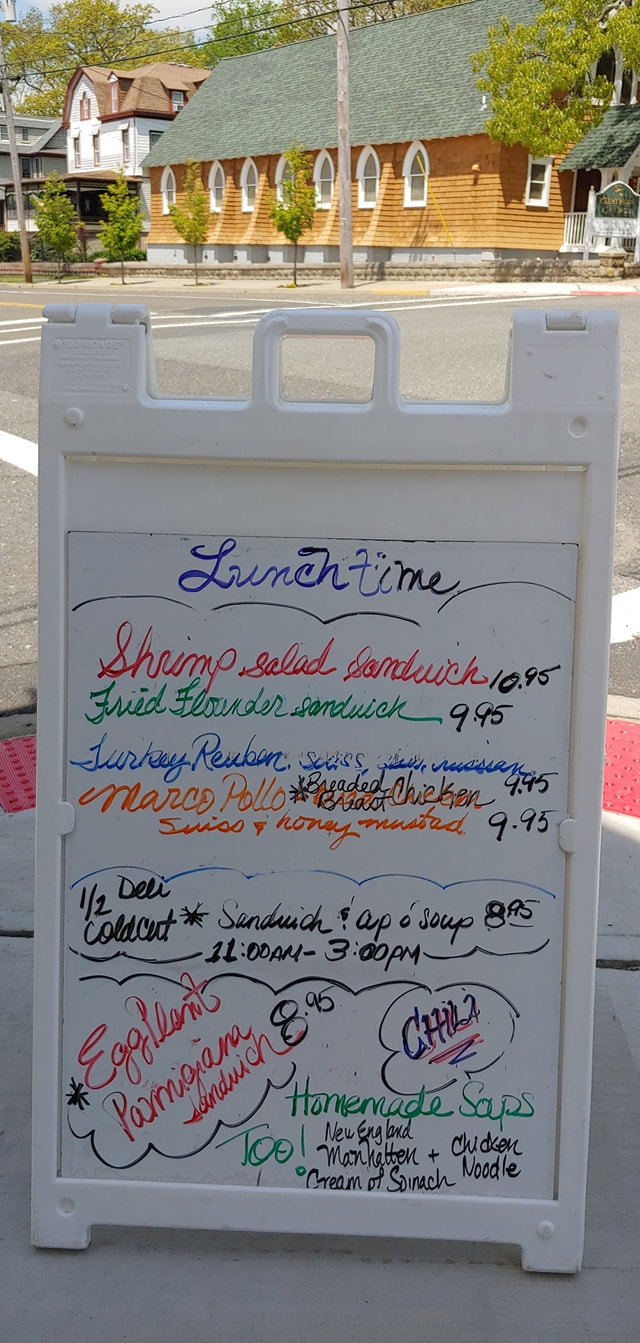 Lunchtime
Shrimp salad sandwich 10.95
Fried Flounder sandwich 9.95
Turkey Reuben, swiss, slaw, russian 9.95
Marco Pollo * Breaded Breast Chicken
Swiss & honey mustad 9.95
1/2 Deli Coldcut * Sandwich & cup o' soup 8.95
11:00AM - 3:00PM
* EggPlant Parmigiana sandwich 8.95
CHILI
Homemade Soups
Too! New England
Manhatten + Chicken Noodle
Cream of Spinach